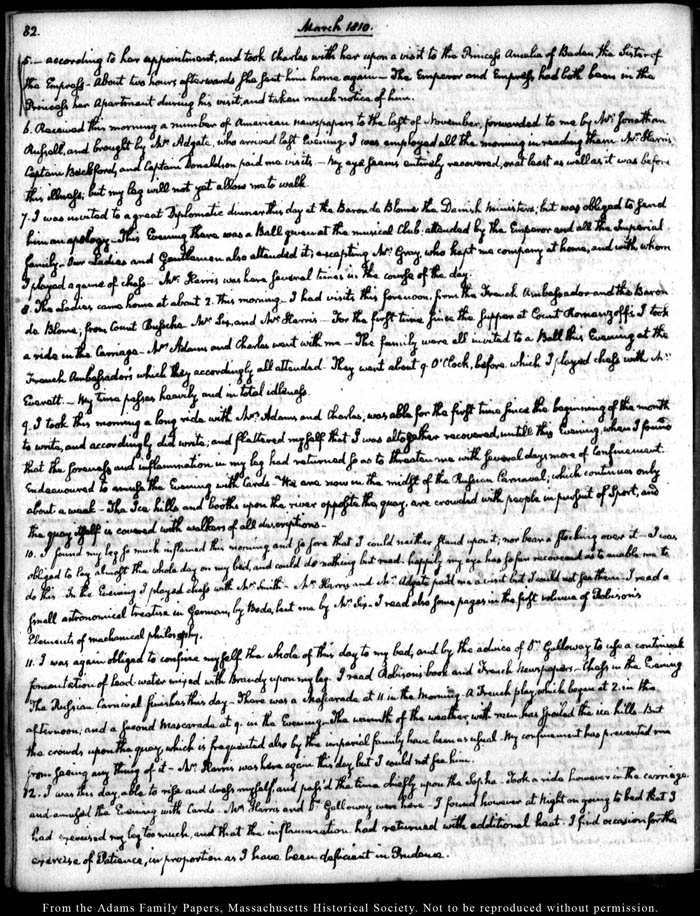 82.
March 1810.
5.— according to her appointment, and took Charles with her upon a visit to the Princess Amelia of Baden the Sister of
the Empress— About two hours afterwards she sent him home again— The Emperor and Empress had both been in the
Princess her Apartment during his visit, and taken much notice of him.
6. Received this morning a number of American newspapers to the last of November, forwarded to me by Mr. Jonathan
Russell, and brought by Mr. Adgate, who arrived last Evening. I was employed all the morning in reading them. Mr. Harris,
Captain Beckford, and Captain Donaldson paid me visits.— My eye seems entirely recovered, or at least as well as it was before
this illness, but my leg will not yet allow me to walk.
7. I was invited to a great Diplomatic dinner this day at the Baron de Blome the Danish Ministers; but was obliged to send
him an apology— This Evening there was a Ball given at the musical Club; attended by the Emperor and all the Imperial
family.— Our Ladies and Gentlemen also attended it; excepting Mr. Gray, who kept me company at home, and with whom
I played a game of chess— Mr. Harris was here several times in the course of the day.
8. The Ladies came home at about 2. this morning.— I had visits this forenoon, from the French Ambassador and the Baron
de Blome; from Count Bussche. Mr. Six, and Mr. Harris— For the first time since the supper at Count Romanzoff's I took
a ride in the Carriage— Mrs. Adams and Charles went with me— The family were all invited to a Ball this Evening at the
French Ambassador's which they accordingly all attended. They went about 9. O'Clock, before which I played chess with Mr.
Everett.— My time passes heavily and in total idleness.
9. I took this morning a long ride with Mrs. Adams and Charles; was able for the first time since the beginning of the month
to write, and accordingly did write; and flattered myself that I was altogether recovered, untill this Evening when I found
that the soreness and inflammation in my leg had returned so as to threaten me with several days more of Confinement.
Endeavoured to amuse the Evening with Cards.— We are now in the midst of the Russian Carnaval; which continues only
about a week— The Ice hills and booths upon the river opposite the quay, are crowded with people in pursuit of Sport, and
the quay itself is covered with walkers of all descriptions—
10. I found my leg so much inflamed this morning and so sore that I could neither stand upon it, nor bear a stocking over it— I was
obliged to lay almost the whole day on my bed, and could do nothing but read. happily my eye has so far recovered as to enable me to
do this. In the Evening I played chess with Mr. Smith— Mr. Harris and Mr. Adgate paid me a visit but I could not see them. I read a
small astronomical treatise in German, by Bode, lent me by Mr. Six.— I read also some pages in the first volume of Robison's
Elements of mechanical philosophy.
11. I was again obliged to confine myself the whole of this day to my bed, and by the advice of Dr. Galloway to use a continual
fomentation of lead-water mixed with Brandy upon my leg. I read Robison's book and French Newspapers. Chess in the Evening
The Russian Carnival finishes this day— There was a Mascarade at 11 in the Morning. A French play, which began at 2. in the
afternoon, and a second Mascarade at 9. in the Evening— The warmth of the weather with rain, has spoiled the ice hills. But
the crowds upon the quay, which is frequented also by the imperial family have been as usual. My confinement has prevented me
from seeing any thing of it— Mr. Harris was here again this day, but I could not see him.
12. I was this day able to rise and dress myself, and pass'd the time chiefly upon the Sopha. Took a ride however in the carriage.
and amused the Evening with Cards. Mr. Harris and Dr. Galloway were here— I found however at Night on going to bed that I
had exercised my leg too much, and that the inflammation had returned with additional heat. I find occasion for the
exercise of Patience, in proportion as I have been deficient in Prudence.
From the Adams Family Papers, Massachusetts Historical Society. Not to be reproduced without permission.